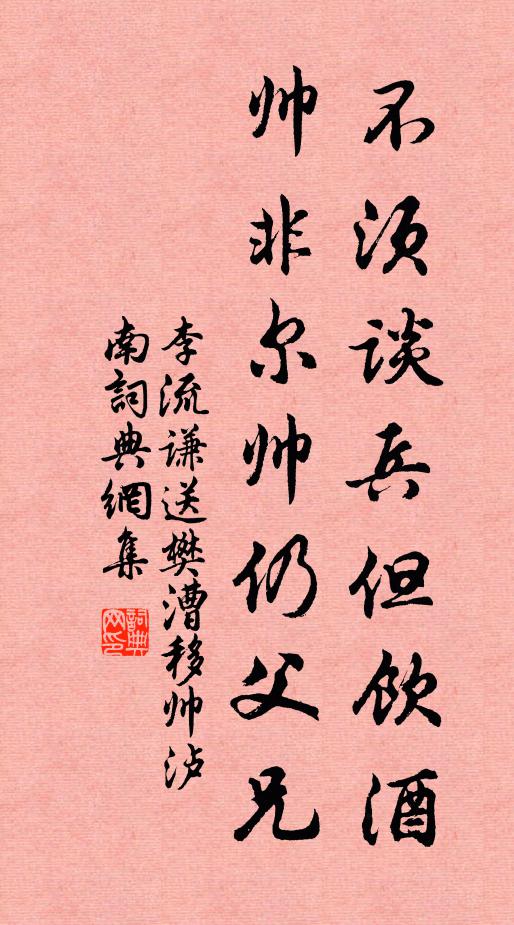 不须谈兵但饮酒
帅非尔帅仍父兄
李流谦送樊漕移帅泸
南詞典網集
詞典网印